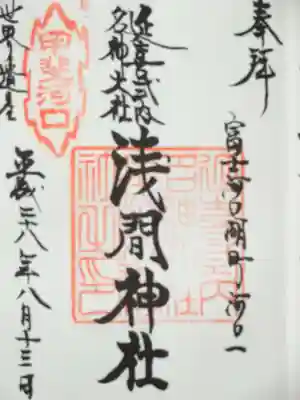 奉拝
富士河口湖町河口一
延喜式内
名神大社
浅間神社
甲斐河口
世界遺産
平成二十八年八月十三日